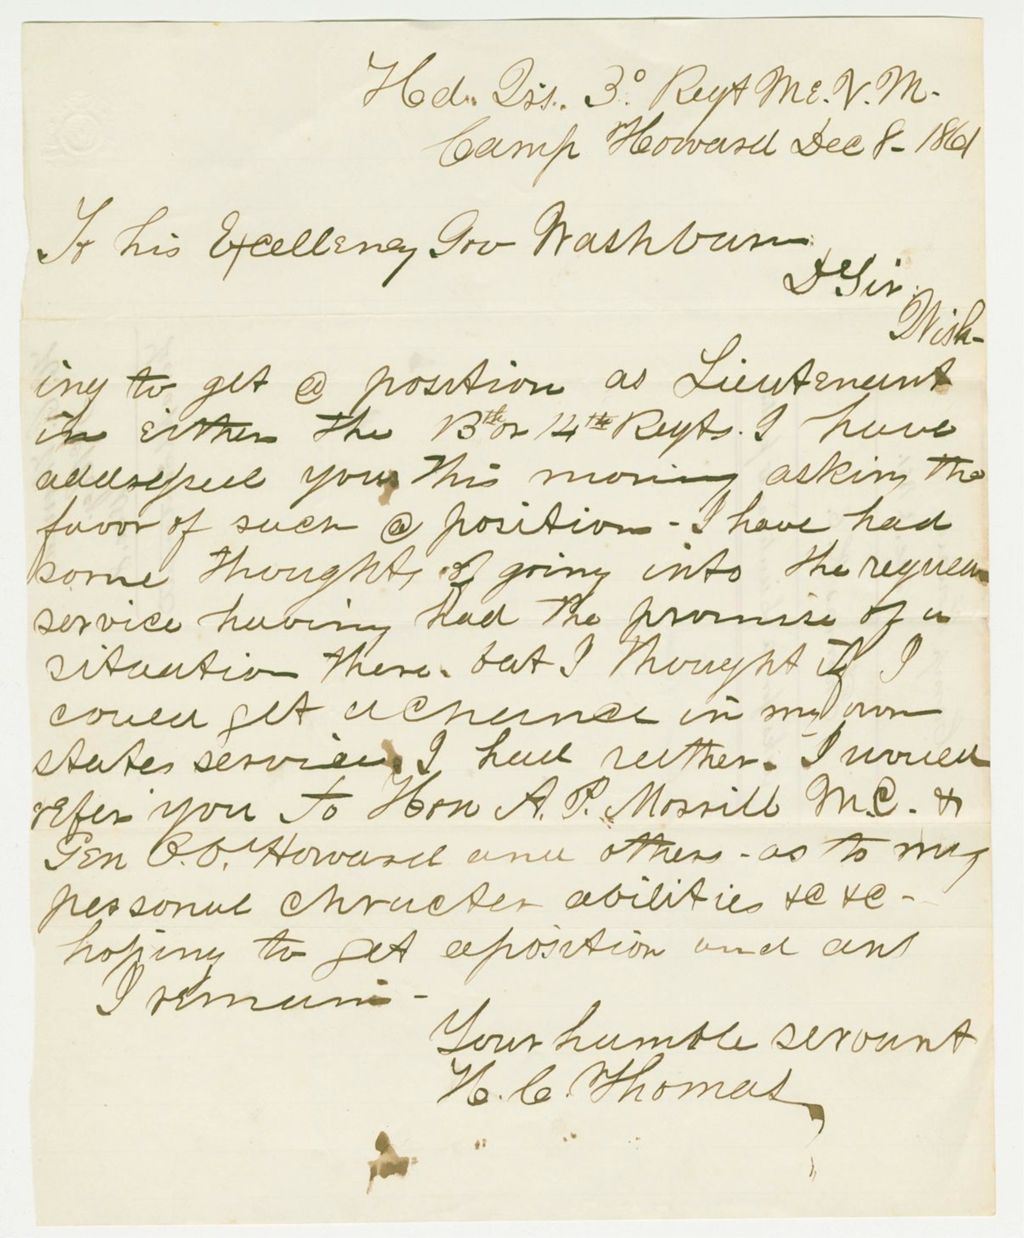 Hd. Qrs. 3º Regt Me. V. M.
Camp Howard Dec 8 - 1861
To his Excellency Gov Washburn
D Sir.
Wish-
ing to get a position as Lieutenant
in either the 13th or 14th Regts. I have
addressed you this morning asking the
favor of such a position - I have had
some thoughts of going into the regular
service having had the promise of a
situation there. but I thought if I
could get a chance in my own
states service, I had rather. I would
refer you to Hon A. P. Morrill M.C. &
Gen O. O. Howard and others - as to my
personal chracter abilities &c &c -
hoping to get a position and ans
I remain -
Your humble servant
H. C. Thomas